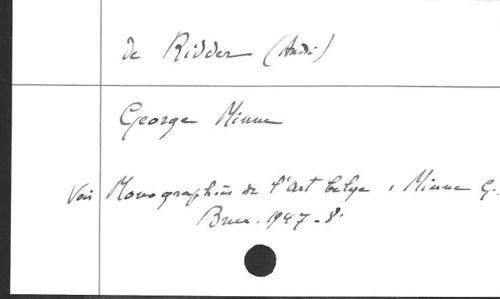 de Ridder (André)
George Minne
Voir Monographies de l'Art belge, Minne G.
Brux. 1947 - 8°